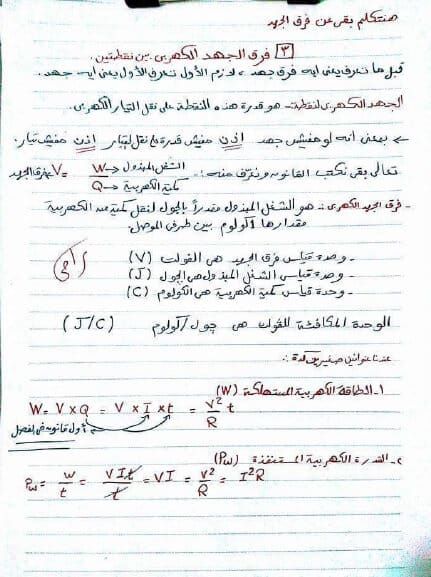 هنتكلم بقى عن فرق الجهد
٣ فرق الجهد الكهربى بين نقطتين
قبل ما نعرف يعنى ايه فرق جهد، لازم الأول نعرف الأول يعنى ايه جهد.
الجهد الكهربى لنقطة:- هو قدرة هذه النقطة على نقل التيار الكهربى.
← بمعنى أنه لو مفيش جهد اذن مفيش قدرة على نقل تيار اذن مفيش تيار.
تعالى بقى نكتب القانون ونعرف منه:- فرق الجهد ← V = W → الشغل المبذول / Q → كمية الكهربية
- فرق الجهد الكهربى:- هو الشغل المبذول مقدراً بالجول لنقل كمية من الكهربية
مقدارها ١ كولوم بين طرفى الموصل.
- وحدة قياس فرق الجهد هى الفولت (V)
- وحدة قياس الشغل المبذول هى الجول (J)
- وحدة قياس كمية الكهربية هى الكولوم (C)
الوحدة المكافئة للفولت هى جول/كولوم (J/C)
عندنا قوانين صغيرين كدة:-
١- الطاقة الكهربية المستهلكة (W)
W = V × Q = V × I × t = V²/R t
أول قانون فى الفصل
٢- القدرة الكهربية المستنفذة (Pw)
Pw = W/t = VIt/t = VI = V²/R = I²R